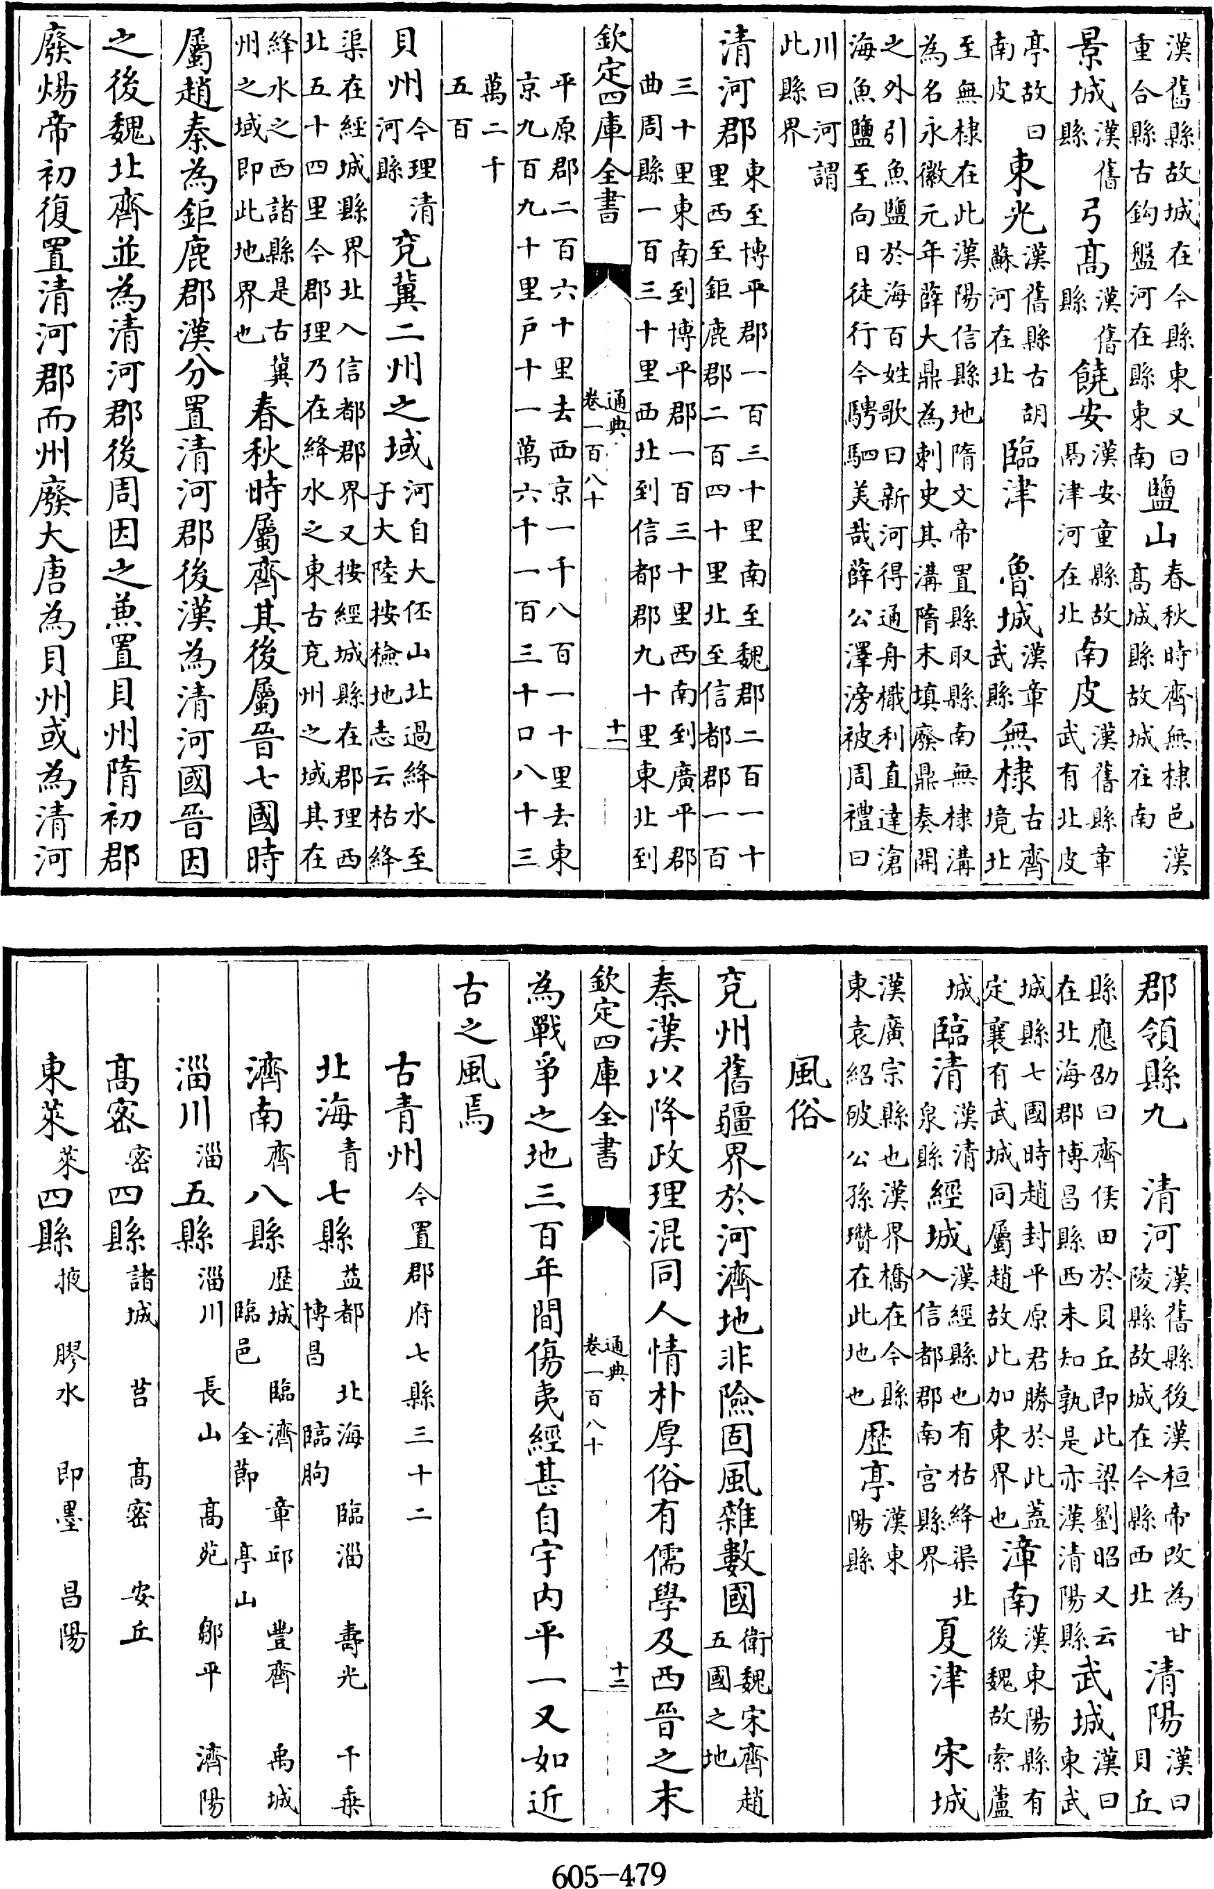 漢舊縣故城在今縣東又曰
重合縣古鈎盤河在縣東南
鹽山
春秋時齊無棣邑漢
高城縣故城在南
景城
漢舊
縣
弓高
漢舊
縣
饒安
漢安童縣故
鬲津河在北
南皮
漢舊縣章
武有北皮
亭故曰
南皮
東光
漢舊縣古胡
蘇河在北
臨津 魯城
漢章
武縣
無棣
古齊
境北
至無棣在此漢陽信縣地隋文帝置縣取縣南無棣溝
為名永徽元年薛大鼎為刺史其溝隋末填廢鼎奏開
之外引魚鹽於海百姓歌曰新河得通舟檝利直達滄
海魚鹽至向日徒行今騁駟美哉薛公澤滂被周禮曰
川曰河謂
此縣界
清河郡
東至博平郡一百三十里南至魏郡二百一十
里西至鉅鹿郡二百四十里北至信都郡一百
三十里東南到博平郡一百三十里西南到廣平郡
曲周縣一百三十里西北到信都郡九十里東北到
欽定四庫全書
通典
卷一百八十
十一
平原郡二百六十里去西京一千八百一十里去東
京九百九十里户十一萬六千一百三十口八十三
萬二千
五百
貝州
今理清
河縣
兗冀二州之域
河自大伾山北過絳水至
于大陸按檢地志云枯絳
渠在經城縣界北入信都郡界又按經城縣在郡理西
北五十四里今郡理乃在絳水之東古兗州之域其在
絳水之西諸縣是古冀
州之域即此地界也
春秋時屬齊其後屬晉七國時
屬趙秦為鉅鹿郡漢分置清河郡後漢為清河國晉因
之後魏北齊並為清河郡後周因之兼置貝州隋初郡
廢煬帝初復置清河郡而州廢大唐為貝州或為清河
郡領縣九 清河
漢舊縣後漢桓帝改為甘
陵縣故城在今縣西北
清陽
漢曰
貝丘
縣應劭曰齊侯田於貝丘即此梁劉昭又云
在北海郡博昌縣西未知孰是亦漢清陽縣
武城
漢曰
東武
城縣七國時趙封平原君勝於此蓋
定襄有武城同屬趙故此加東界也
漳南
漢東陽縣有
後魏故索蘆
城
臨清
漢清
泉縣
經城
漢經縣也有枯絳渠北
入信都郡南宫縣界
夏津 宋城
漢廣宗縣也漢界橋在今縣
東袁紹破公孫瓚在此地也
歴亭
漢東
陽縣
風俗
兗州舊疆界於河濟地非險固風雜數國
衛魏宋齊趙
五國之地
秦漢以降政理混同人情朴厚俗有儒學及西晉之末
欽定四庫全書
通典
卷一百八十
十二
為戰爭之地三百年間傷夷經甚自宇内平一又如近
古之風焉
古青州
今置郡府七縣三十二
北海
青
七縣
益都 北海 臨淄 壽光 千乗
博昌 臨朐
濟南
齊
八縣
歴城 臨濟 章邱 豐齊 禹城
臨邑 全節 亭山
淄川
淄
五縣
淄川 長山 高苑 鄒平 濟陽
高密
密
四縣
諸城 莒 高密 安丘
東萊
萊
四縣
掖 膠水 即墨 昌陽
605-479